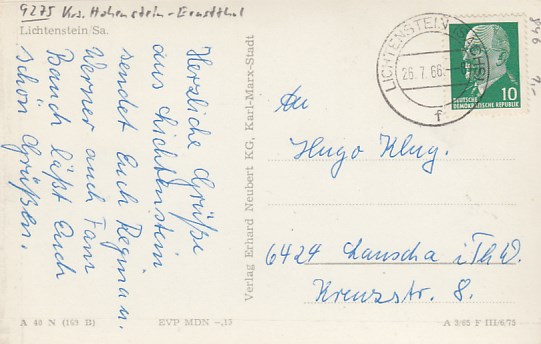 9275 Krs. Hohenstein-Ernstthal
Lichtenstein/Sa.
Herzliche Grüße
aus Lichtenstein
sendet Euch Regina u.
Werner auch Fam
Bauch läßt Euch
schön Grüßen.
Verlag Erhard Neubert KG, Karl-Marx-Stadt
LICHTENSTEIN
26.7.66
f
10
DEUTSCHE
DEMOKRATISCHE REPUBLIK
An
Hugo Klug.
6424 Lauscha i. Th. W.
Kreuzstr. 8.
A 40 N (169 II)
EVP MDN -,15
A 2/65 F III/6/73